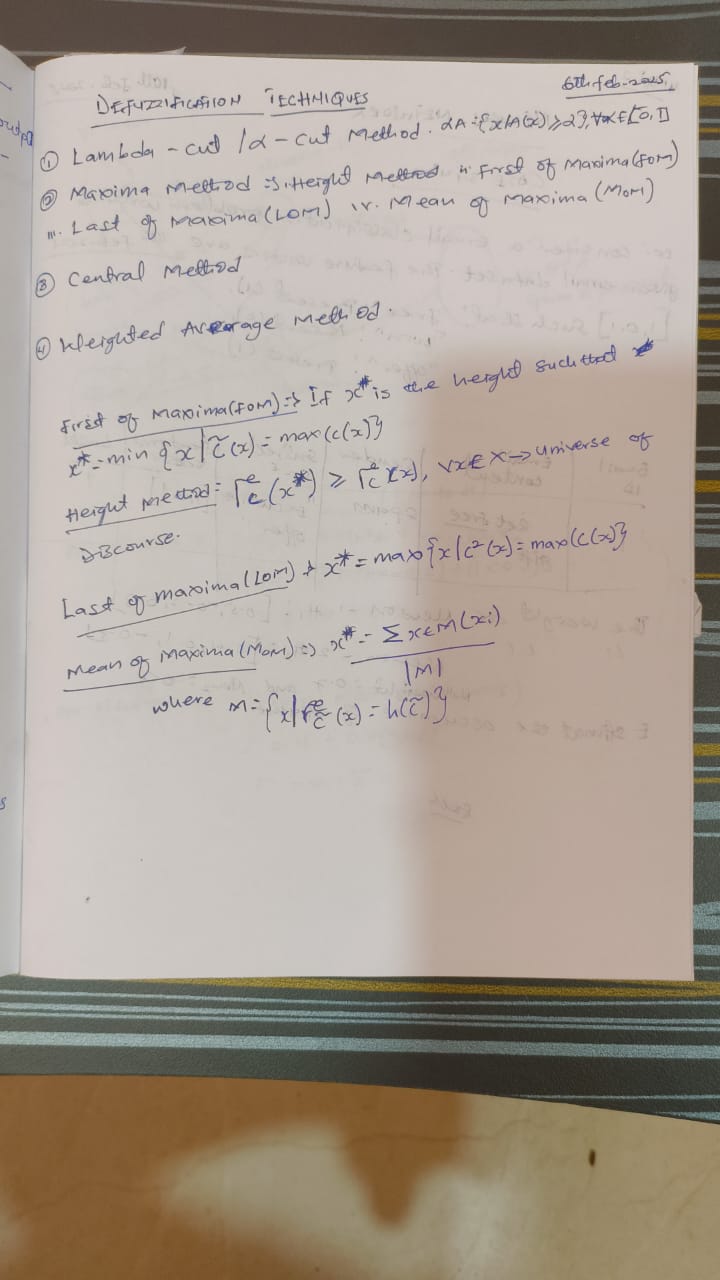 6th feb-2025
DEFUZZIFICATION TECHNIQUES
① Lambda-cut /α-cut Method. αA={x/A(x)≥α},∀α∈[0,1]
② Maxima Method => i. Height Method ii. First of Maxima(FOM)
iii. Last of Maxima(LOM) iv. Mean of Maxima(MOM)
③ Central Method
④ Weighted Average Method.
First of Maxima(FOM)=> If x* is the height such that
x*=min {x|C̃(x)=max(c(x)}
Height Method= Γc̃(x*) ≥ Γc̃(x), ∀x∈X→universe of
Discourse.
Last of maxima(LOM) → x*=max{x/c²(x)=max(c(x)}
Mean of Maxima(MOM)=> x*= Σx∈M(xi)
|M|
where M={x|Γc̃(x)=h(c̃)}